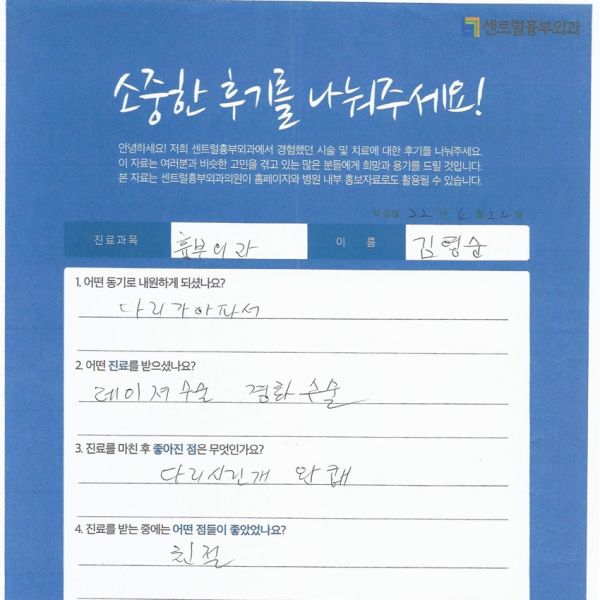 센트럴흉부외과
소중한 후기를 나눠주세요!
안녕하세요! 저희 센트럴흉부외과에서 경험했던 시술 및 치료에 대한 후기를 나눠주세요.
이 자료는 여러분과 비슷한 고민을 겪고 있는 많은 분들에게 희망과 용기를 드릴 것입니다.
본 자료는 센트럴흉부외과의원이 홈페이지와 병원 내부 홍보자료로도 활용될 수 있습니다.
작성일 22 년 4 월 22 일
진료과목 흉부외과 이 름 김영순
1. 어떤 동기로 내원하게 되셨나요?
다리가아파서
2. 어떤 진료를 받으셨나요?
레이저수술 경화수술
3. 진료를 마친 후 좋아진 점은 무엇인가요?
다리시린개 완쾌
4. 진료를 받는 중에는 어떤 점들이 좋았었나요?
친절